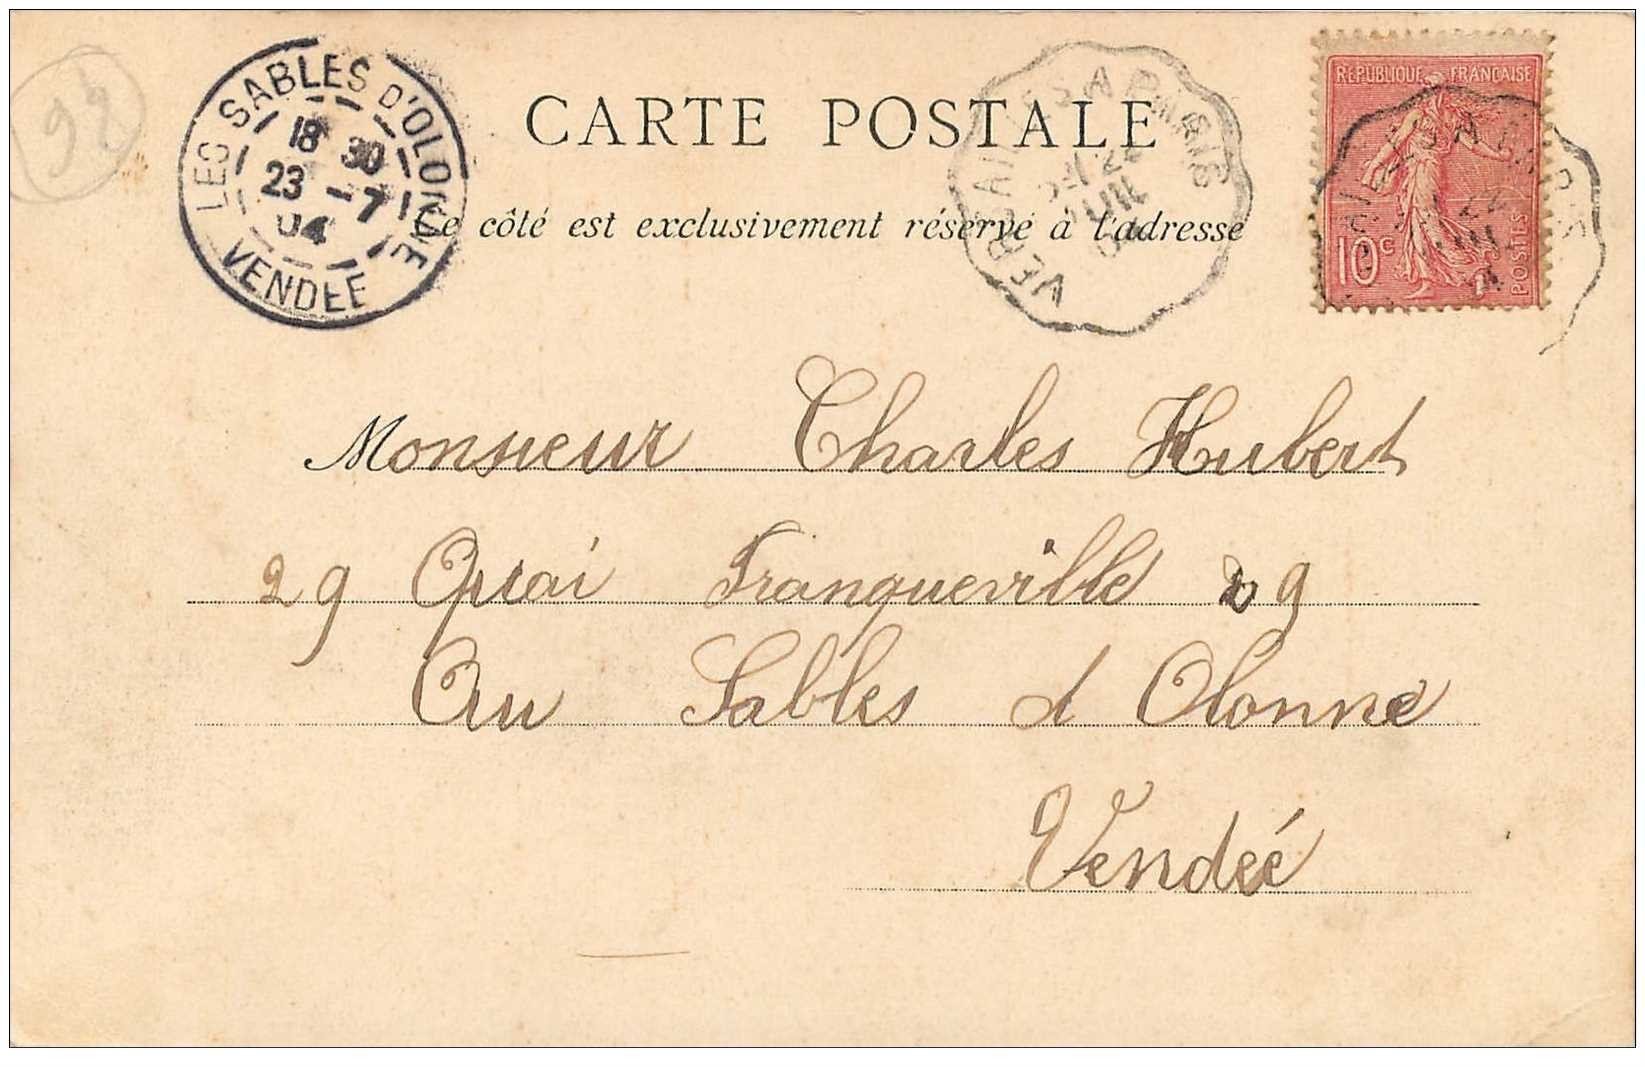 92
LES SABLES D'OLONNE
18 30
23 -7
04
VENDEE
CARTE POSTALE
Ce côté est exclusivement réservé à l'adresse
VERSAILLES A PARIS
22
JUIL
04
REPUBLIQUE FRANÇAISE
10c
POSTES
Monsieur Charles Hubert
29 Quai Franqueville 29
Au Sables d Olonne
Vendée